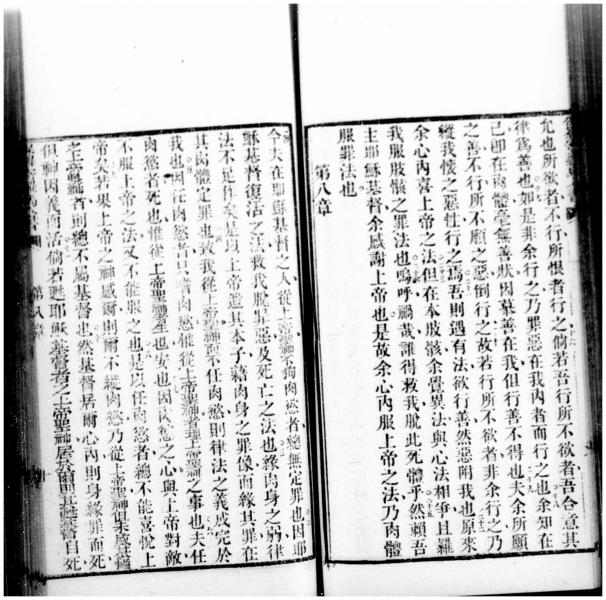 允也所欲者不行所恨者行之倘若吾行所不欲者吾合意其
律爲善也如是非余行之乃罪惡在我內者而行之也余知在
己卽在肉體毫無善狀因慕善在我但行善不得也夫余所願
之善不行所不願之惡倒行之故若行所不欲者非余行之乃
縱我懷之惡性行之焉吾則遇有法欲行善然惡附我也原來
余心內喜上帝之法但在本肢骸余覺異法與心法相爭且羅
我服肢骸之罪法也嗚呼禍哉誰得救我脫此死體乎然賴吾
主耶穌基督余感謝上帝也是故余心內服上帝之法乃肉體
服罪法也
第八章
今夫在耶穌基督之人從上帝聖神不徇肉慾者總無定罪也因耶
穌基督復活之法救我脫罪惡及死亡之法也緣肉身之弱律
法不足作矣是以上帝遣其本子藉肉身之罪像而緣其罪在
其肉體定罪也致我從上帝聖神不任肉慾則律法之義成完於
我也因任肉慾者只嗜肉慾惟從上帝聖神者理上帝聖神之事也夫任
肉慾者死也惟從上帝聖神生也安也因肉慾之心與上帝對敵
不服上帝之法又不能服之也是以任肉慾者總不能喜悅上
帝矣若果上帝之神感爾則爾不縱肉慾乃從上帝聖神但未感上帝
之上帝聖神者則總不屬基督也然基督居爾心內則身緣罪而死
但神因義而活倘若甦耶穌基督者之上帝聖神居於爾則其甦基督自死
第八章